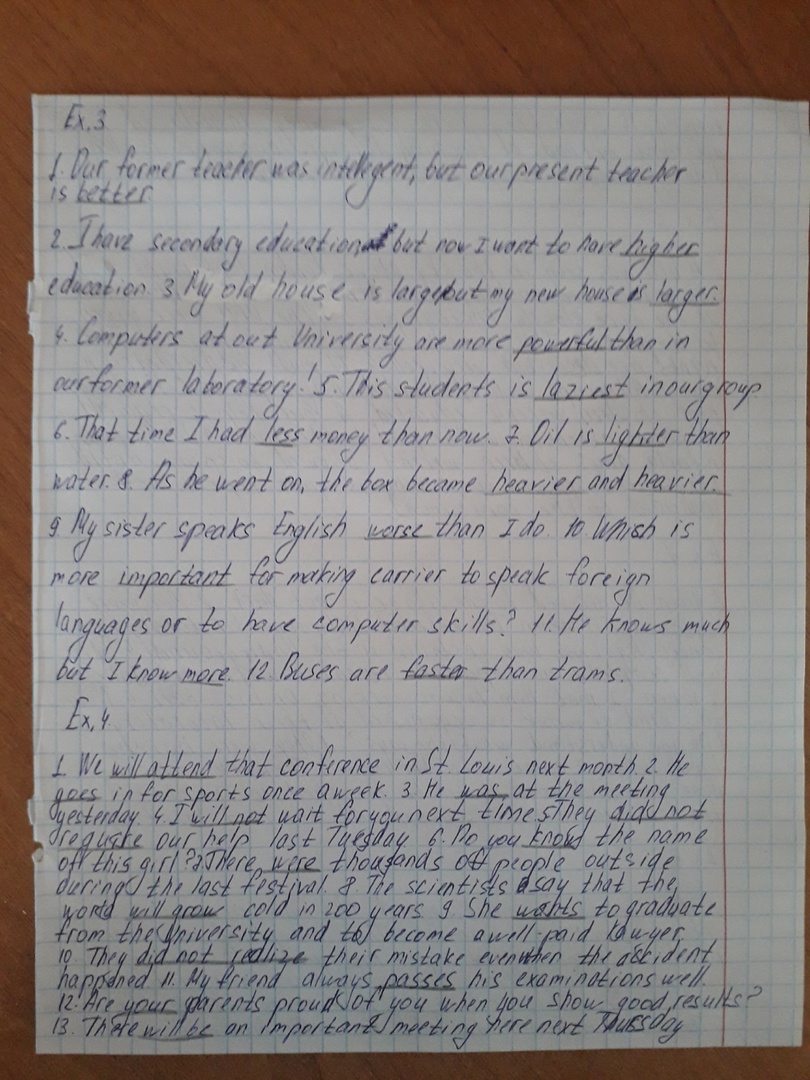 Ex.3
1. Our former teacher was intellegent, but our present teacher
is better
2. I have secondary education, but now I want to have higher
education. 3. My old house is large, but my new house is larger.
4. Computers at out University are more powerful than in
our former laboratory. 5. This students is laziest in our group
6. That time I had less money than now. 7. Oil is lighter than
water. 8. As he went on, the box became heavier and heavier.
9 My sister speaks English worse than I do. 10 Which is
more important for making carrier to speak foreign
languages or to have computer skills? 11. He knows much
but I know more. 12. Buses are faster than trams.
Ex.4
1. We will attend that conference in St. Louis next month. 2. He
goes in for sports once a week. 3 He was at the meeting
yesterday. 4 I will not wait for you next time. 5 They did not
require our help last Tuesday. 6. Do you know the name
of this girl? 7 There were thousands of people outside
during the last festival. 8 The scientists say that the
world will grow cold in 200 years. 9. She wants to graduate
from the University and to become a well-paid lawyer.
10. They did not realize their mistake even when the accident
happened 11. My friend always passes his examinations well.
12. Are your parents proud of you when you show good results?
13. There will be an important meeting here next Thursday